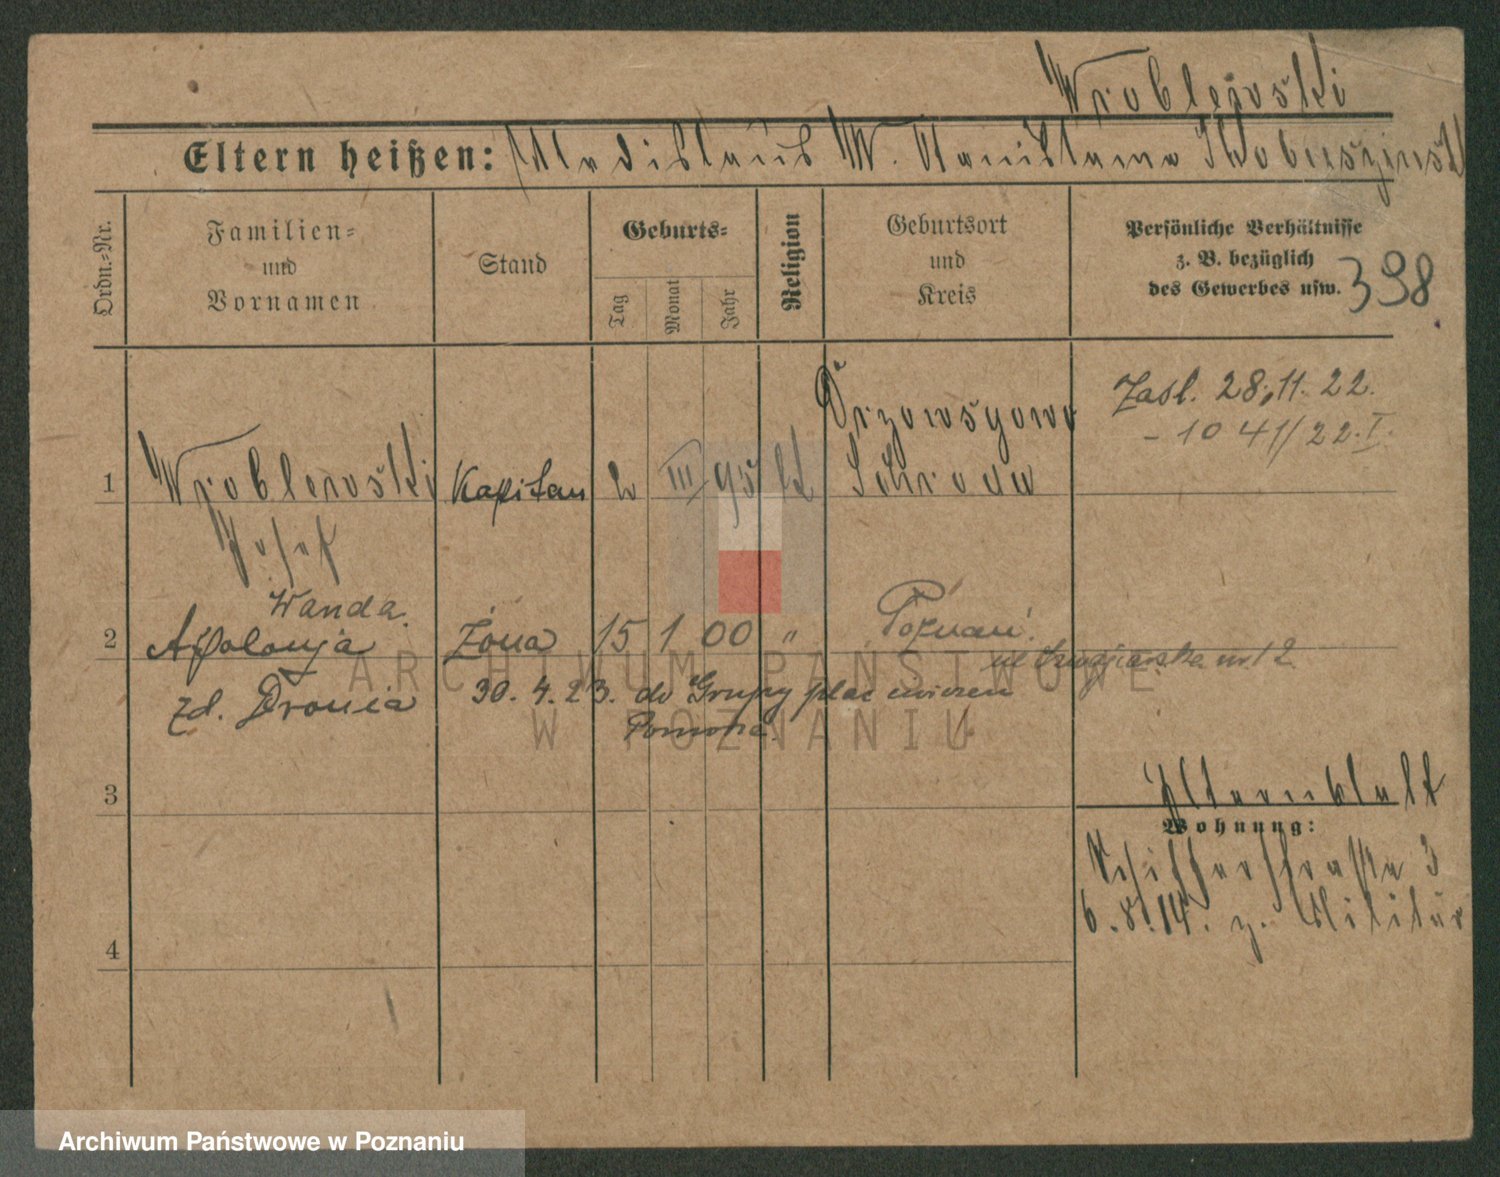 Wroblewski
Eltern heißen: Wladislaus W. Stanislawa
Ordn.-Nr.
Familien-
und
Vornamen
Stand
Geburts-
Tag
Monat
Jahr
Religion
Geburtsort
und
Kreis
Persönliche Verhältnisse
z. B. bezüglich
des Gewerbes usw.
398
1
Wroblewski
Josef
Kapitan
2
III
95
kt
Schroda
Zasl. 28.11.22.
- 1041/22.I.
2
Wanda.
Apolonja
zd. Dronia
Żona
15
1
00
"
Poznań.
nr 12
30.4.23. do Grupy plac
Pomorze.
3
Elternblatt
Wohnung:
Schifferstrasse 3
6.8.14. z. Militär
4
ARCHIWUM PAŃSTWOWE
W POZNANIU
Archiwum Państwowe w Poznaniu